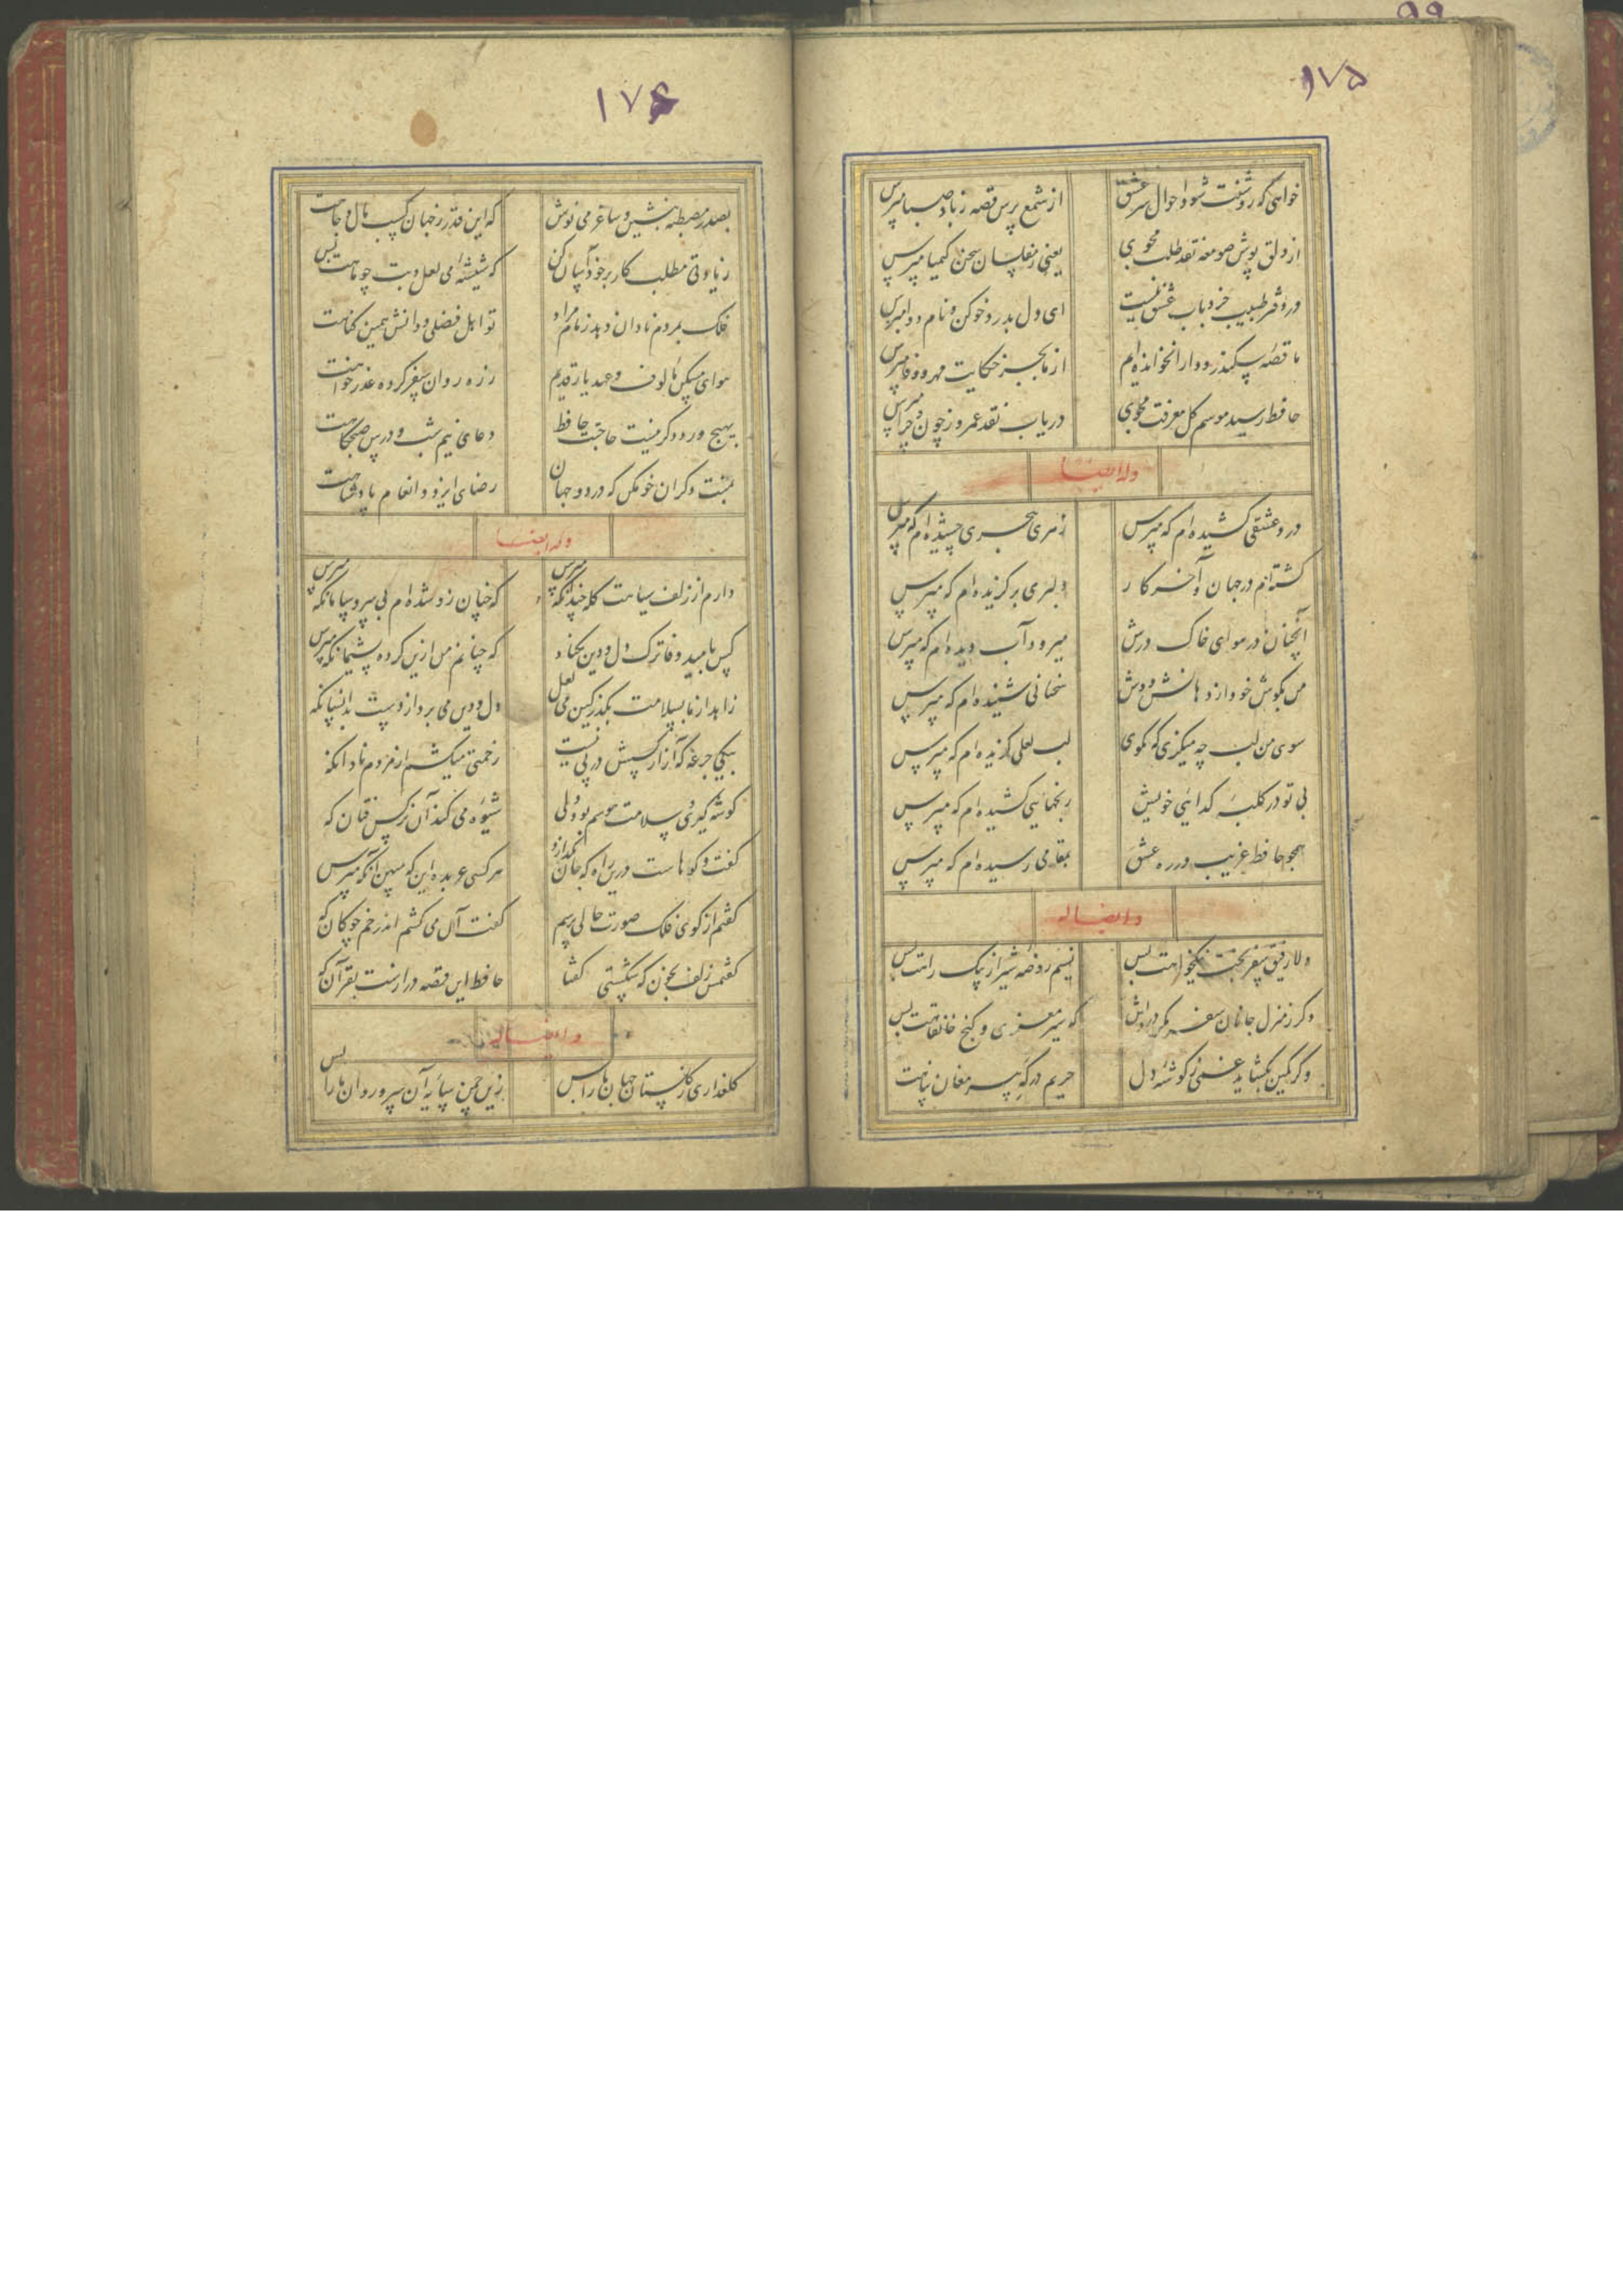 ۹۹
۱۷۵
خواهی که روشنت شود احوال سر عشق از شمع پرس قصه ز باد صبا مپرس
از دلق پوش صومعه نقد طلب مجوی یعنی ز مفلسان سخن کیمیا مپرس
در دفتر طبیب خرد باب عشق نیست ای دل بدرد خو کن و نام دوا مپرس
ما قصه سکندر و دارا نخوانده ام از ما بجز حکایت مهر و وفا مپرس
حافظ رسید موسم گل معرفت مجوی دریاب نقد عمر و ز چون و چرا مپرس
وله ایضا
درد عشقی کشیده ام که مپرس زهر هجری چشیده ام که مپرس
گشته ام در جهان و آخر کار دلبری برگزیده ام که مپرس
آنچنان در هوای خاک درش میرود آب دیده ام که مپرس
من بگوش خود از دهانش دوش سخنانی شنیده ام که مپرس
سوی من لب چه میگزی که مگوی لب لعلی گزیده ام که مپرس
بی تو در کلبه گدایی خویش رنجهایی کشیده ام که مپرس
همچو حافظ غریب در ره عشق بمقامی رسیده ام که مپرس
و ایضا له
دلا رفیق سفر بخت نیکخواهت بس نسیم روضه شیراز پیک راهت بس
دگر ز منزل جانان سفر مکن درویش که سیر معنوی و کنج خانقاهت بس
وگر کمین بگشاید غمی ز گوشه دل حریم درگه پیر مغان پناهت
۱۷۶
بصدر مصطبه بنشین و ساغر می نوش که این قدر ز جهان کسب مال و جاهت
زیادتی مطلب کار بر خود آسان کن که شیشه می لعل و بت چو ماهت بس
فلک بمردم نادان دهد زمام مراد تو اهل فضلی و دانش همین گناهت
هوای مسکن مألوف و عهد یار قدیم ز ره روان سفر کرده عذر خواهت
بهیچ ورد دگر نیست حاجت حافظ دعای نیم شب و درس صبحگاهت
بمنت دگران خو مکن که در دو جهان رضای ایزد و انعام پادشاهت
وله ایضا
دارم از زلف سیاهت گله چندانکه مپرس که چنان زو شده ام بی سر و سامانکه مپرس
کس بامید وفا ترک دل و دین مکناد که چنانم من ازین کرده پشیمانکه مپرس
زاهد از ما بسلامت بگذر کین می لعل دل و دین می برد از دست بدانسانکه
بیکی جرعه که آزار کسش در پی نیست زحمتی میکشم از مردم نادانکه
گوشه گیری و سلامت هوسم بود ولی شیوه می کند آن نرگس فتان که
گفت و گوهاست درین راه که جان بگدازد هر کسی عربده این که مبین آنکه مپرس
گفتم از گوی فلک صورت حالی پرسم گفت آن می کشم اندر خم چوگان که
گفتمش زلف بخون که شکستی گفتا حافظ این قصه درازست بقرآن که
و ایضا له
گلعذاری ز گلستان جهان ما را بس زین چمن سایه آن سرو روان ما را بس